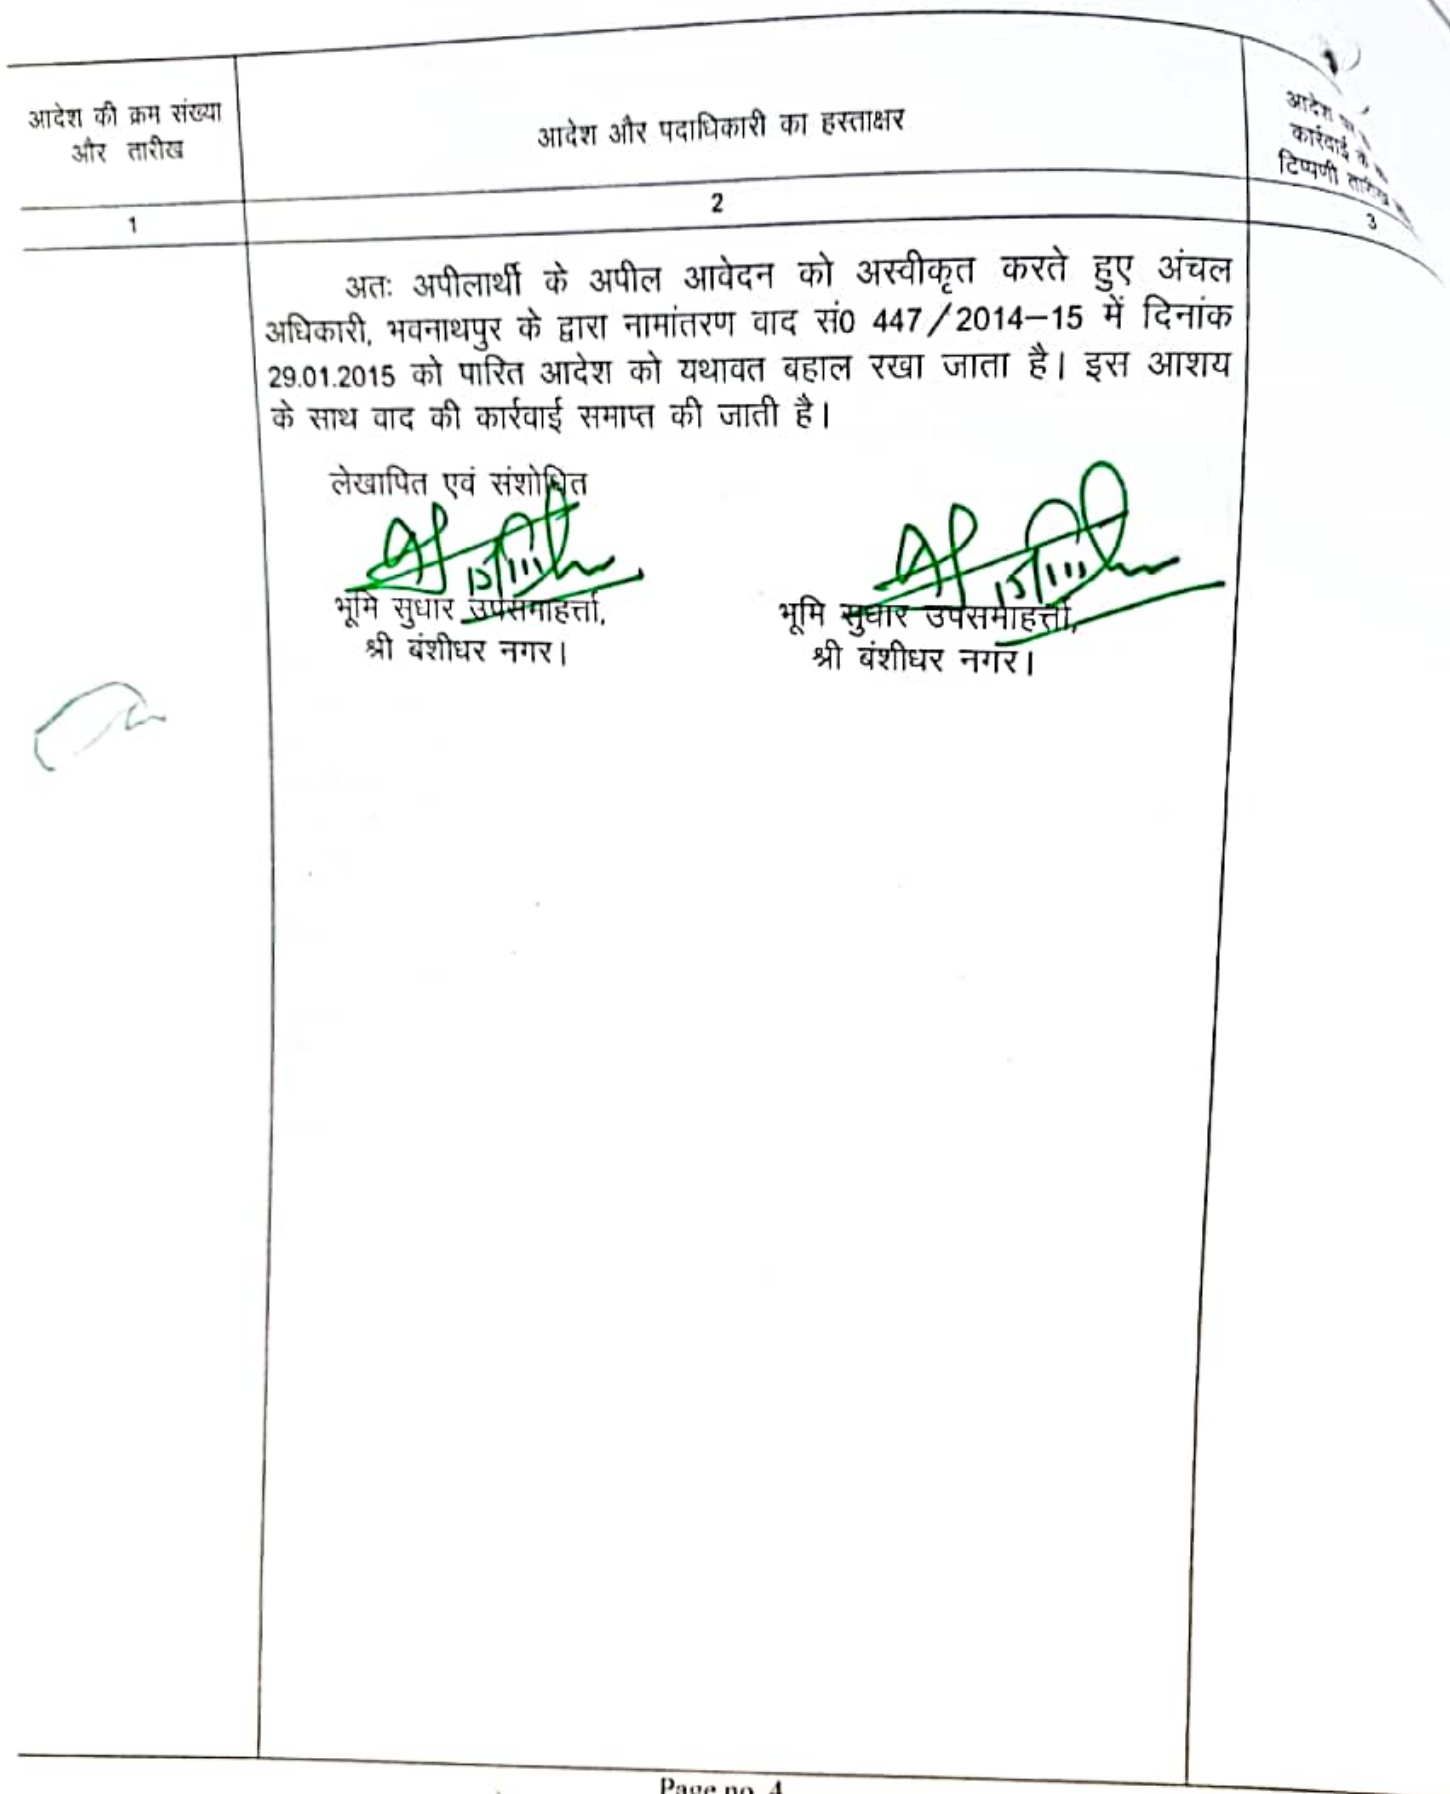 आदेश की क्रम संख्या
और तारीख
आदेश और पदाधिकारी का हस्ताक्षर
आदेश
कार्रवाई के
टिप्पणी तारीख
1
2
3
अतः अपीलार्थी के अपील आवेदन को अस्वीकृत करते हुए अंचल
अधिकारी, भवनाथपुर के द्वारा नामांतरण वाद सं0 447/2014–15 में दिनांक
29.01.2015 को पारित आदेश को यथावत बहाल रखा जाता है। इस आशय
के साथ वाद की कार्रवाई समाप्त की जाती है।
लेखापित एवं संशोधित
भूमि सुधार उपसमाहर्त्ता,
श्री बंशीधर नगर।
भूमि सुधार उपसमाहर्त्ता,
श्री बंशीधर नगर।
Page no. 4